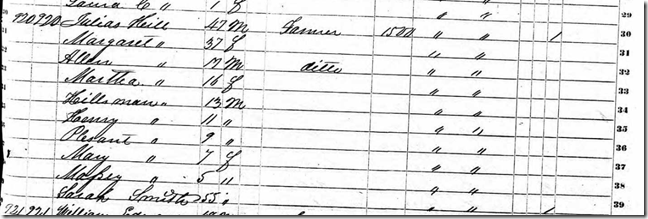 Laura C " 1 f " " 29
920 920 Julias Hill 47 M Farmer 1500 " " 1 30
Margaret " 37 f " "
Allen " 17 M ditto " " 32
Martha " 16 f " " 33
Hillsman " 13 M " " 34
Henry " 11 " " " 35
Plesant " 9 " " " 36
Mary " 7 f " " 37
Massey " 5 " " " 38
Sarah Smith 55 " " "
921 921 William " " 1 39